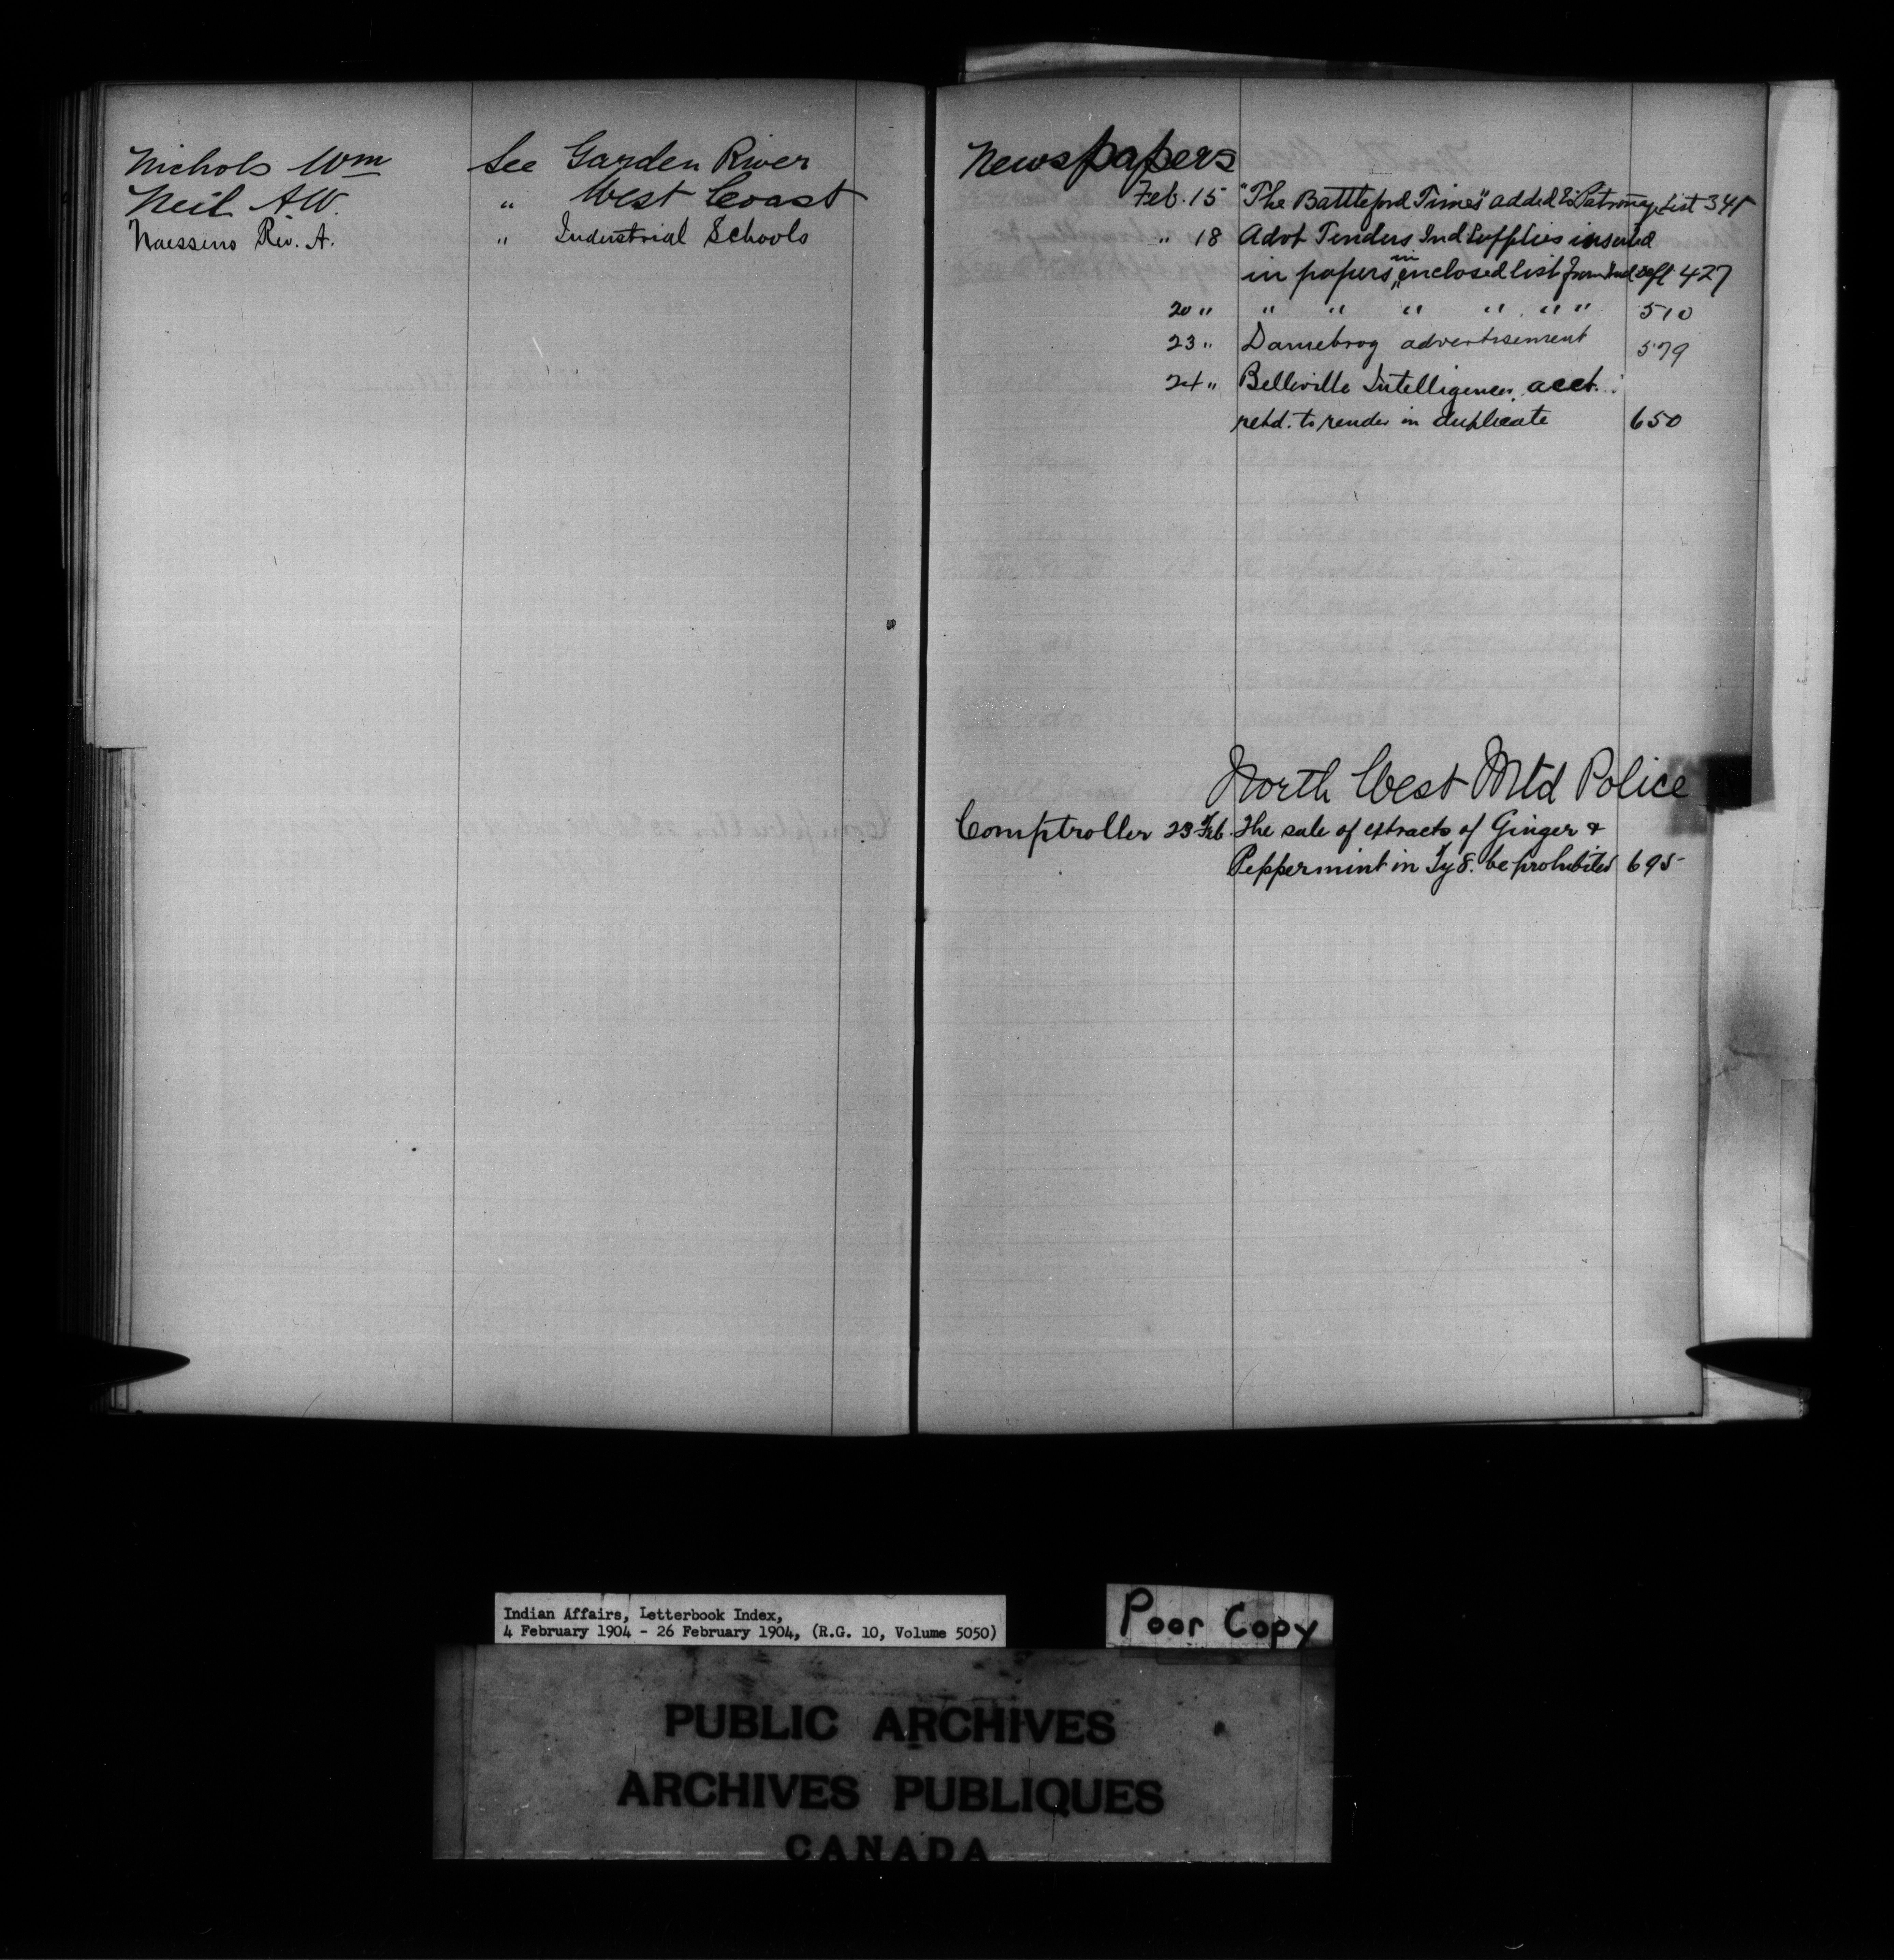 Nichols Wm See Garden River
Neil A.W. " West Coast
Naessens Rev. A. " Industrial Schools
Newspapers
Feb. 15 "The Battleford Times" added to Patronage List 345
" 18 Advt Tenders Ind Supplies inserted
in papers in enclosed list from Ind Dept 427
20 " " " " " " " 510
23 " Dannebrog advertisement 579
24 " Belleville Intelligencer acct.
retd. to render in duplicate 650
North West Mtd Police
Comptroller 23 Feb. The sale of extracts of Ginger &
Peppermint in Tys. be prohibited 695
Indian Affairs, Letterbook Index,
4 February 1904 - 26 February 1904, (R.G. 10, Volume 5050)
Poor Copy
PUBLIC ARCHIVES
ARCHIVES PUBLIQUES
CANADA